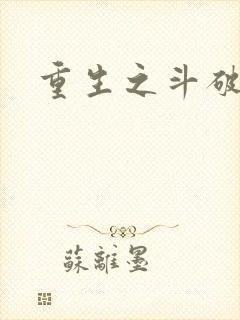 重生之斗破
蘇離墨